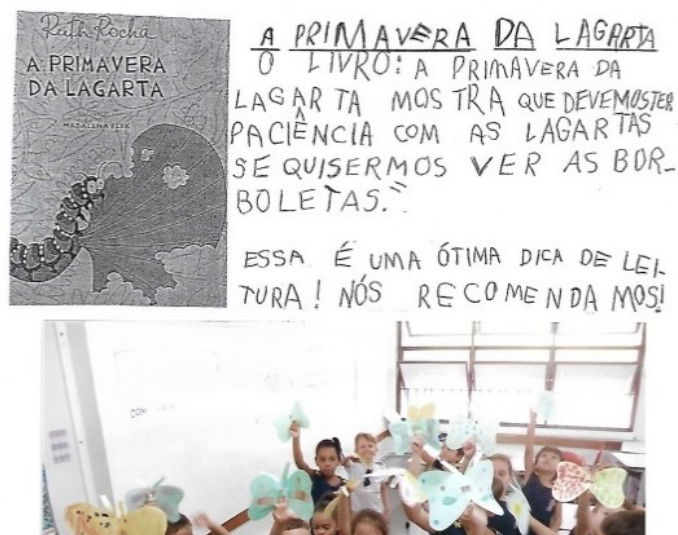 Ruth Rocha
A PRIMAVERA
DA LAGARTA
MADALENA ELEK
A PRIMAVERA DA LAGARTA
O LIVRO: A PRIMAVERA DA
LAGARTA MOSTRA QUE DEVEMOS TER
PACIÊNCIA COM AS LAGARTAS
SE QUISERMOS VER AS BOR-
BOLETAS."
ESSA É UMA ÓTIMA DICA DE LEI-
TURA! NÓS RECOMENDAMOS!